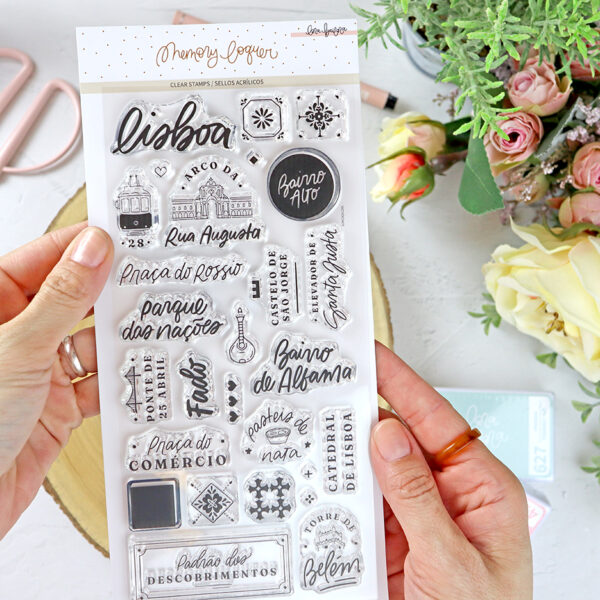 Memory Loquer
CLEAR STAMPS / SELLOS ACRÍLICOS
lisboa
28
ARCO DA
Rua Augusta
Bairro
Alto
Praça do Rossio
CASTELO DE
SÃO JORGE
ELEVADOR DE
Santa Justa
parque
das nações
PONTE DE
25 ABRIL
Fado
Bairro
de Alfama
Praça do
COMÉRCIO
pasteis de
nata
CATEDRAL
DE LISBOA
Padrão dos
DESCOBRIMENTOS
TORRE DE
Belém
627